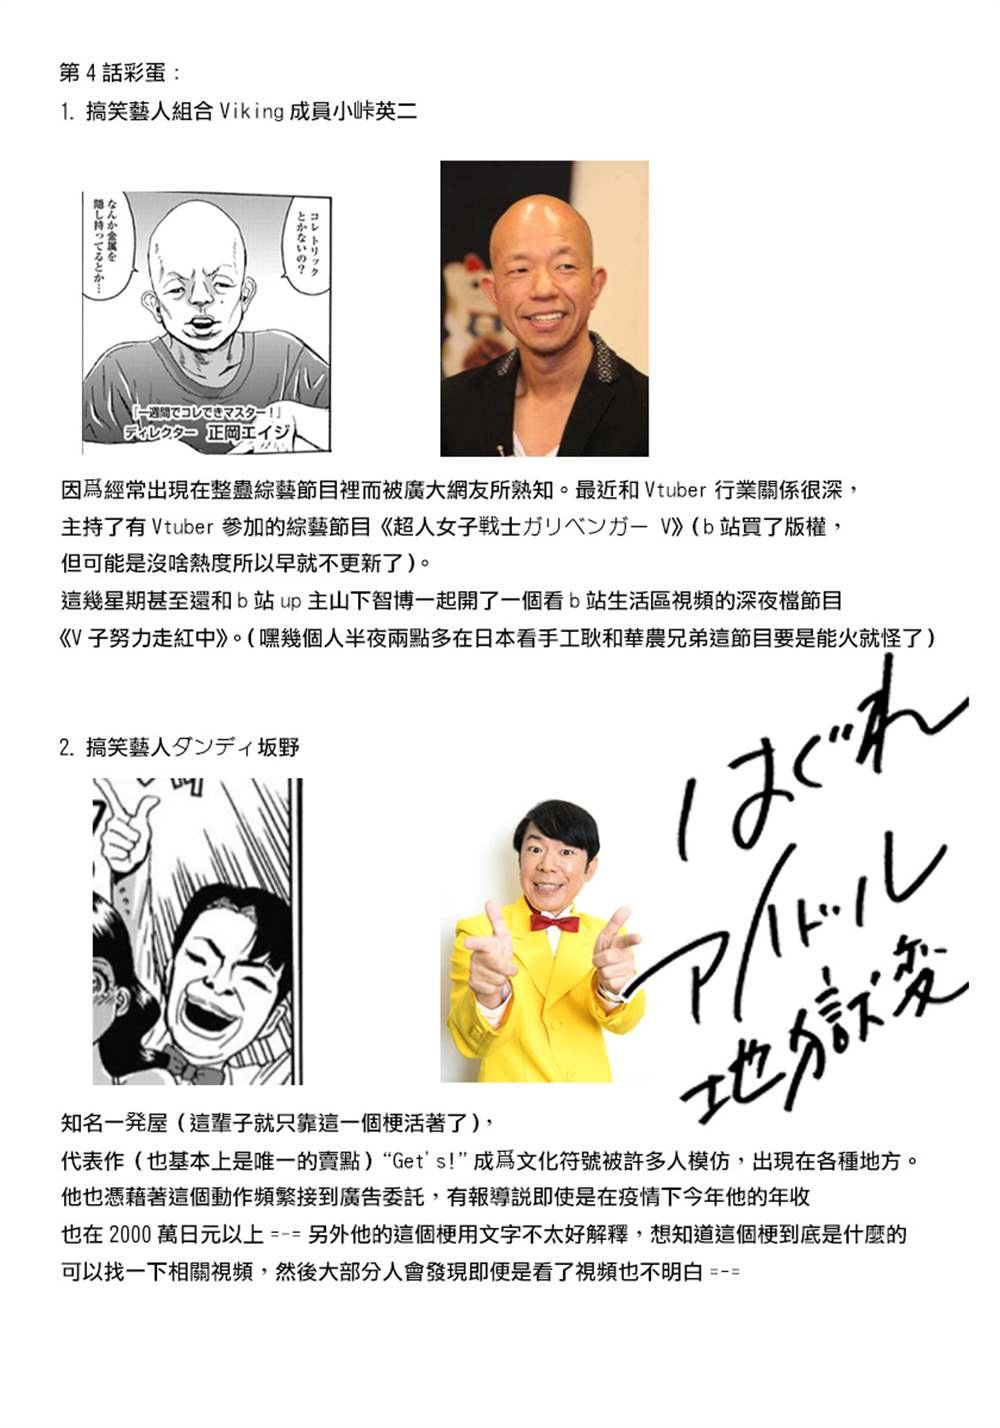 第4話彩蛋：
1. 搞笑藝人組合Viking成員小峠英二
コレトリック
とかないの？
なんか金属を
隠し持ってるとか…
『一週間でコレできマスター！』
ディレクター 正岡エイジ
因爲經常出現在整蠱綜藝節目裡而被廣大網友所熟知。最近和Vtuber行業關係很深，
主持了有Vtuber參加的綜藝節目《超人女子戦士ガリベンガー V》（b站買了版權，
但可能是沒啥熱度所以早就不更新了）。
這幾星期甚至還和b站up主山下智博一起開了一個看b站生活區視頻的深夜檔節目
《V子努力走紅中》。（嘿幾個人半夜兩點多在日本看手工耿和華農兄弟這節目要是能火就怪了）
2. 搞笑藝人ダンディ坂野
はぐれ
アイドル
地獄変
知名一発屋（這輩子就只靠這一個梗活著了），
代表作（也基本上是唯一的賣點）“Get's!”成爲文化符號被許多人模仿，出現在各種地方。
他也憑藉著這個動作頻繁接到廣告委託，有報導説即使是在疫情下今年他的年收
也在2000萬日元以上=-=另外他的這個梗用文字不太好解釋，想知道這個梗到底是什麼的
可以找一下相關視頻，然後大部分人會發現即便是看了視頻也不明白=-=